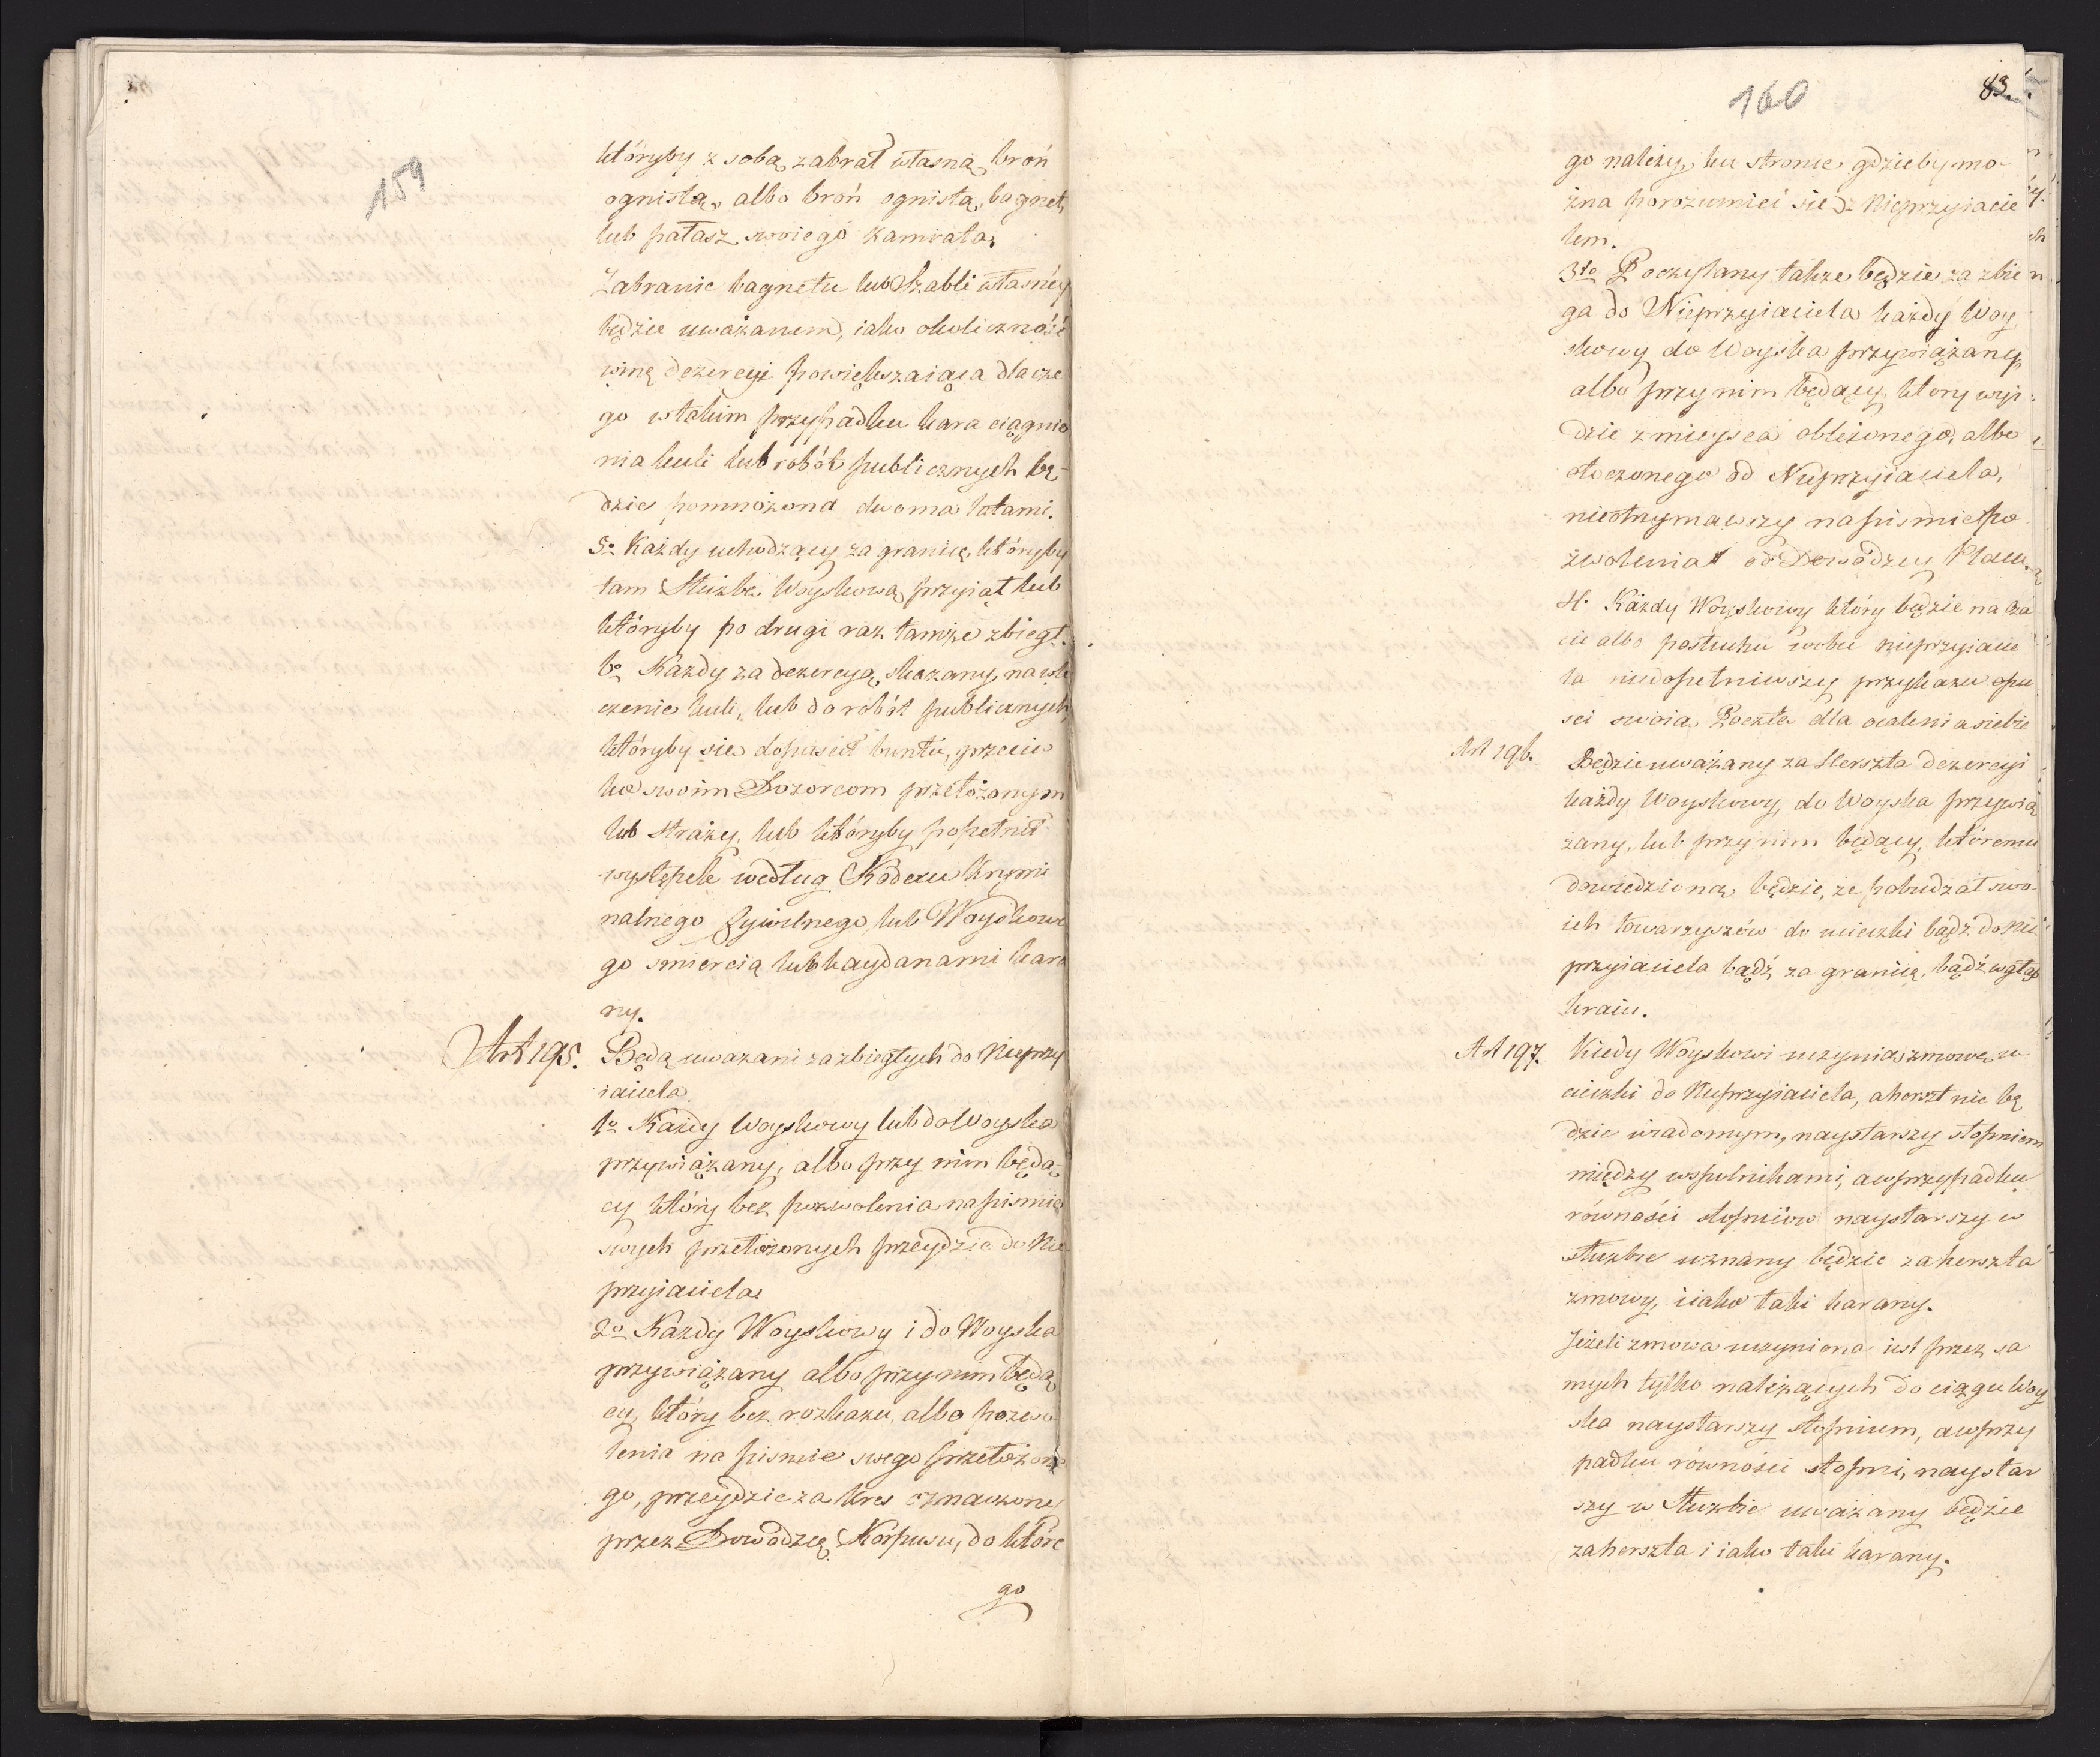 159
któryby z sobą zabrał własną broń
ognistą, albo broń ognistą, bagnet,
lub pałasz swoiego kamrata.
Zabranie bagnetu lub Szabli własnéy
będzie uważanem, iako okoliczność
winę dezercyi powiększaiąca dlacze
go w takim przypadku kara ciągnie
nia kuli lub robót publicznych bę-
dzie pomnożona dwoma latami.
5o Każdy uchodzący za granicę, któryby
tam Służbę Woyskową przyiął lub
któryby po drugi raz tamże zbiegł.
6o Każdy za dezercyą skazany na wle
czenie kuli, lub do robót publicznych
któryby się dopuścił buntu, przeciw
ko swoim Dozorcom przełożonym
lub straży, lub któryby popełnił
występek według Kodexu Krymi
nalnego Cywilnego lub Woyskowe
go smiercią lub kaydanami kara
ny.
Art 195. Będą uważani za zbiegłych do Nieprzy
iaciela.
1o Każdy Woyskowy lub do Woyska
przywiązany, albo przy nim będą-
cy który bez pozwolenia na pismie
swych przełożonych przeydzie do Nie
przyiaciela.
2o Każdy Woyskowy i do Woyska
przywiązany albo przy nim będą
cy, który bez rozkazu, albo pozwo
lenia na pismie swego przełożone
go, przeydzie za kres oznaczony
przez Dowódzcę Korpusu, do które
go
160
83.
go należy, ku stronie gdzieby mo-
żna porozumieć się z Nieprzyiacie
lem.
3to Poczytany także będzie za zbie
ga do Nieprzyiaciela każdy Woy
skowy do Woyska przywiązany
albo przy nim będący, ktory wyi:
dzie z mieysca oblężonego, albo
otoczonego od Nieprzyiaciela,
nieotrzymawszy na pismie po
zwolenia od Dowódzcy Placu.
4. Każdy Woyskowy który będzie na cza
cie albo posłuchu wobec nieprzyiacie
la niedopełniwszy przykazu opu
sci swoią Pocztę dla ocalenia siebie
Art 196. Będzie uważany za Herszta dezercyi
każdy Woyskowy, do Woyska przywią
zany, lub przy nim będący, któremu
dowiedzioną będzie, że pobudzał swo
ich towarzyszów do ucieczki bądź do Nie
przyiaciela bądź za granicę, bądź wgłąb
kraiu.
Art 197. Kiedy Woyskowi uczynią zmowę u
cieczki do Nieprzyiaciela, a herszt nie bę
dzie wiadomym, naystarszy stopniem
między wspolnikami, a w przypadku
równości stopniow naystarszy w
służbie uznany będzie za herszta
zmowy, i iako taki karany.
Jeżeli zmowa uczyniona iest przez sa
mych tylko należących do ciągu Woy
ska naystarszy stopniem, a w przy
padku równości stopni, naystar
szy w Służbie uważany będzie
za herszta i iako taki karany.